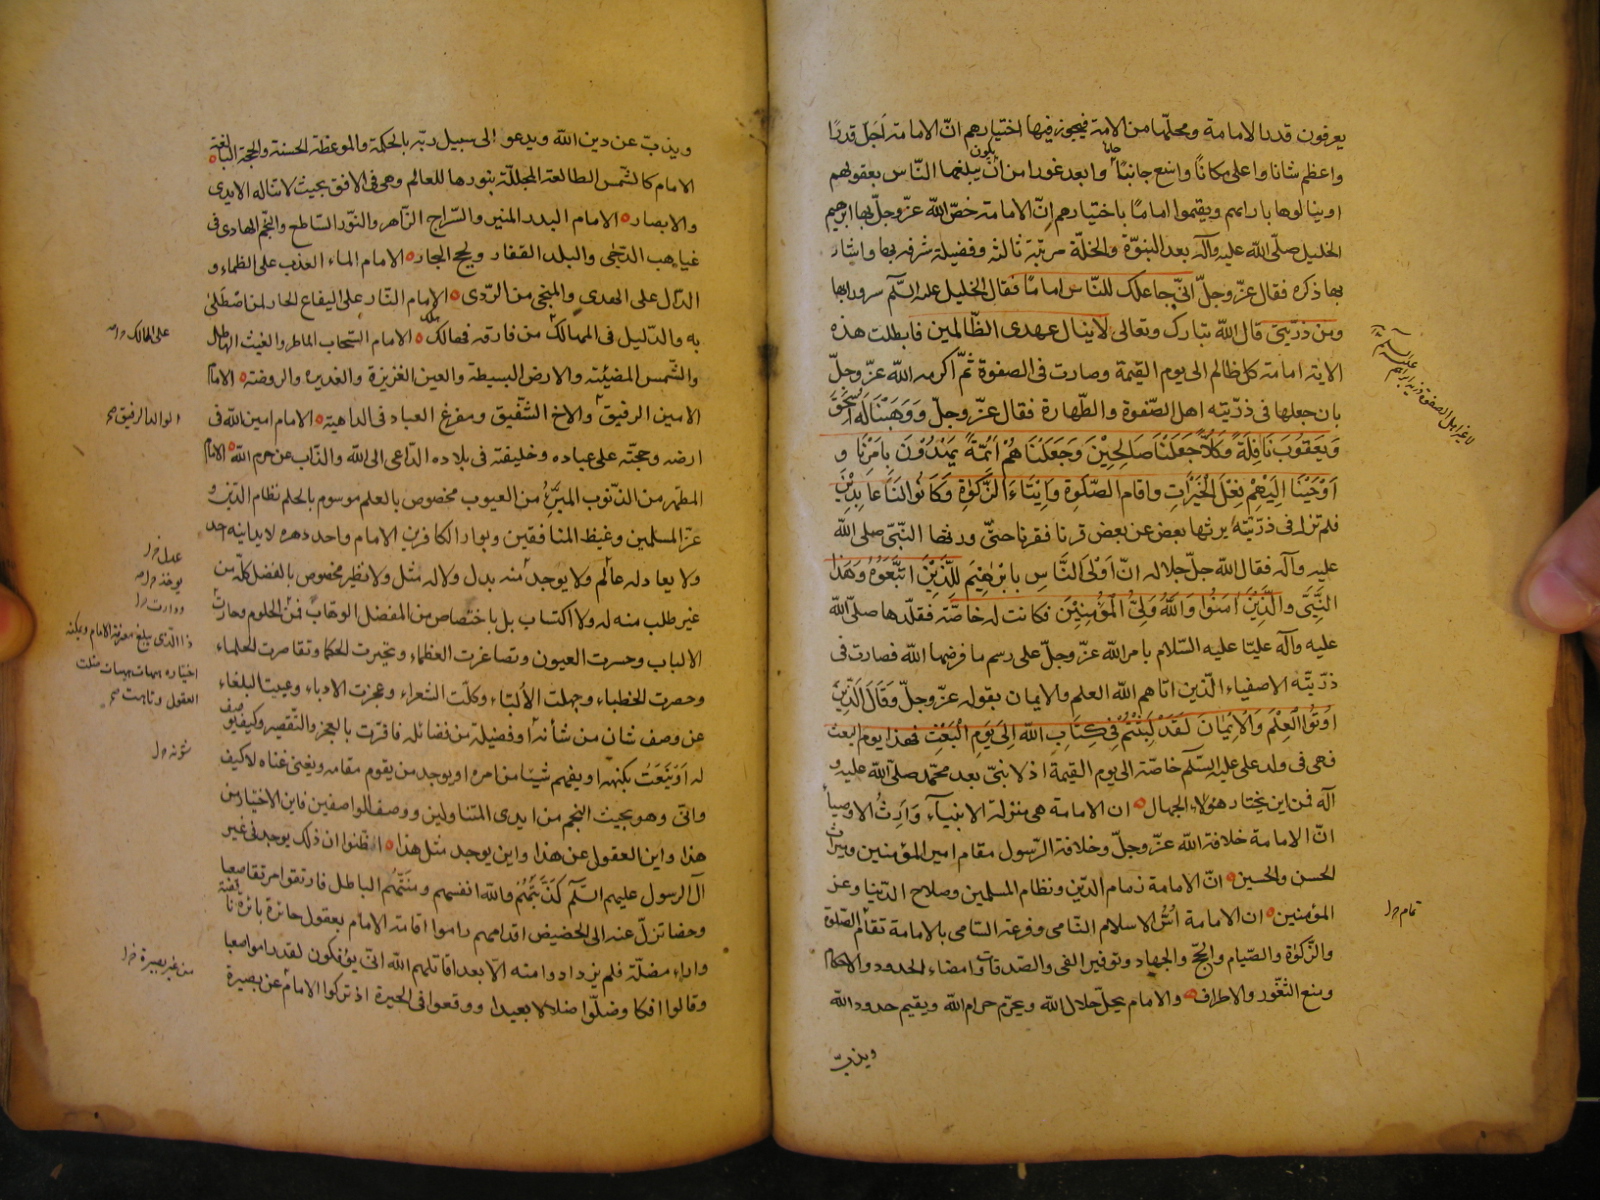 يعرفون قدر الامامة ومحلّها من الامة فيجوز فيها اختيارهم انّ الامامة اَجَلّ قدرًا
واعظم شانا واعلى مكانًا وامنع جانبًا وابعد غورا من اَنْ يبلغها النّاس بعقولهم
او ينالوها بارائهم ويقيموا امامًا باختيارهم اِنّ الامامة خصّ اللّه عزّ وجلّ بها ابرهيم
الخليل صلّى اللّه عليه وآله بعد النبوّة والخلّة مرتبة ثالثه وفضيلة شرفه بها واشار
بها ذكره فقال عزّ وجلّ انّى جاعلك للنّاس امامًا فقال الخليل عليه السّلم سرورا بها
ومن ذرّيتى قال اللّه تبارك وتعالى لا ينال عهدى الظّالمين فابطلت هذه
الاية امامة كل ظالم الى يوم القيمة وصارت فى الصفوة ثمّ اكرمه اللّه عزّ وجلّ
بان جعلها فى ذرّيته اهل الصّفوة والطّهارة فقال عزّ وجلّ وَوَهَبْنَا لَهُ اِسْحٰقَ
وَيَعقُوبَ نَافِلَةً وَكُلًّا جَعَلْنَا صَالِحِيْنَ وَجَعَلْنَا هُمْ اَئِمَّةً يَهْدُوْنَ بِاَمْرِنَا وَ
اَوْحَيْنَا اِلَيْهِمْ فِعْلَ الْخَيْرَاتِ وَاِقَامَ الصَّلٰوةِ وَاِيْتَاءَ الزَّكٰوةِ وَكَانُوا لَنَا عَابِدِيْنَ
فلم تزل فى ذرّيّته يرثها بعض عن بعض قرنا فقرنا حتّى ورثها النّبىّ صلى اللّه
عليه وآله فقال اللّه جلّ جلاله اِنّ اَوْلَى النَّاسِ بِابْرٰهِيْمَ لِلَّذِيْنَ اتَّبَعُوْهُ وَهٰذَا
النَّبِىُّ وَالَّذِيْنَ اٰمَنُوا وَاللّٰهُ وَلِىُّ الْمُؤْمِنِيْنَ فكانت له خاصّة فقلّدها صلّى اللّه
عليه وآله عليّا عليه السّلام بامر اللّه عزّ وجلّ على رسم ما فرضها اللّه فصارت فى
ذرّيّته الاصفياء الّذين اتاهم اللّه العلم والايمان بقوله عزّ وجلّ وَقَالَ الَّذِيْنَ
اُوتُوا الْعِلْمَ وَالْاِيْمَانَ لَقَدْ لَبِثْتُمْ فِىْ كِتَابِ اللّٰهِ اِلٰى يَوْمِ الْبَعْثِ فهذا يوم البعث
فهى فى ولد على عليه السّلم خاصّة الى يوم القيمة اذ لا نبىّ بعد محمّد صلّى اللّه عليه و
آله فمن اين يختار هؤلاء الجهال ان الامامة هى منزلة الانبيآء وَاِرثُ الاوصيآ
انّ الامامة خلافة اللّه عزّ وجلّ وخلافة الرّسول مقام امير المؤمنين وميراث
الحسن والحسين انّ الامامة زمام الدّين ونظام المسلمين وصلاح الدّنيا وعز
المؤمنين ان الامامة اُسُّ الاسلام النّامى وفرعه السّامى بالامامة تمام الصّلوة
والزّكوة والصّيام والحجّ والجهاد وتوفير الفى والصّدقات وامضاء الحدود والاحكام
ومنع الثّغور والاطراف والامام يحلّ حلال اللّه ويحرّم حرام اللّه ويقيم حدود اللّه
ويذبّ
تمام
ويذبّ عن دين اللّه ويدعو الى سبيل ربّه بالحكمة والموعظة الحسنة والحجّة البالغة
الامام كالشّمس الطالعة المجلّلة بنورها للعالم وهى فى الافق بحيث لا تناله الايدى
والابصار الامام البدر المنير والسّراج الزّاهر والنّور السّاطع والنّجم الهادى فى
غياهب الدّجى والبلد القفار ولجج البحار الامام الماء العذب على الظماء و
الدّال على الهدى والمنجى من الرّدى الامام النّار على اليفاع الحار لمن اصْطَلى
به والدّليل فى المهالك من فارقه فهالك الامام السّحاب الماطر والغيث الهاطل
والشّمس المضيئة والارض البسيطة والعين الغزيرة والغدير والروضة الامام
الامين الرفيق والاخ الشّفيق ومفزع العباد فى الداهية الامام امين اللّه فى
ارضه وحجّته على عباده وخليفته فى بلاده الدّاعى الى اللّه والذّاب عن حرم اللّه الامام
المطهّر من الذّنوب المبرّءُ من العيوب مخصوص بالعلم موسوم بالحلم نظام الدّين و
عزّ المسلمين وغيظ المنافقين وبوار الكافرين الامام واحد دهره لا يدانيه احد
ولا يعادله عالم ولا يوجد منه بدل ولا له مثل ولا نظير مخصوص بالفضل كلّه من
غير طلب منه له ولا اكتساب بل باختصاص من المفضل الوهّاب
الالباب وحسرت العيون وتصاغرت العظماء وتحيّرت الحكما وتقاصرت الحلماء
وحصرت الخطباء وجهلت الألبّاء وكلّت الشعراء وعجزت الادباء وعييت البلغاء
عن وصف شان من شأنه او فضيلة من فضائله فاقرّت بالعجز والتّقصير وكيف يوصف
له اَوْ يُنْعَتُ بكنهه او يفهم شيئا من امره او يوجد من يقوم مقامه ويغنى غناه لا كيف
وانّى وهو بحيث النجم من ايدى المتناولين ووصف الواصفين فاين الاختيار من
هذا واين العقول عن هذا واين يوجد مثل هذا اظنّوا ان ذلك يوجد فى غير
آل الرسول عليهم السّلم كَذَّبَتْهُمْ واللّه انفسهم ومَنَّتْهُم الباطل فارتقوا مرتقا صعبا
دحضا تزلّ عنه الى الحضيض اقدامهم راموا اقامة الامام بعقول حائرة بائرة ناقصة
واراء مضلّة فلم يزدادوا منه الّا بعدا قاتلهم اللّه انّى يؤفكون لقد راموا صعبا
وقالوا افكا وضلّوا ضلالا بعيدا ووقعوا فى الحيرة اذ تركوا الامام عن بصيرة
والوالد الرفيق
ذا الذى يبلغ معرفة الامام ويمكنه
اختياره هيهات هيهات ضلّت
العقول وتاهت
من غير بصيرة